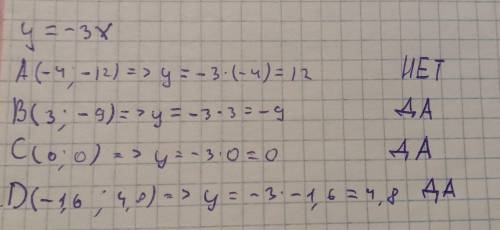 y = -3x
A(-4; -12) => y = -3·(-4) = 12 НЕТ
B(3; -9) => y = -3·3 = -9 ДА
C(0; 0) => y = -3·0 = 0 ДА
D(-1,6 ; 4,8) => y = -3·-1,6 = 4,8 ДА